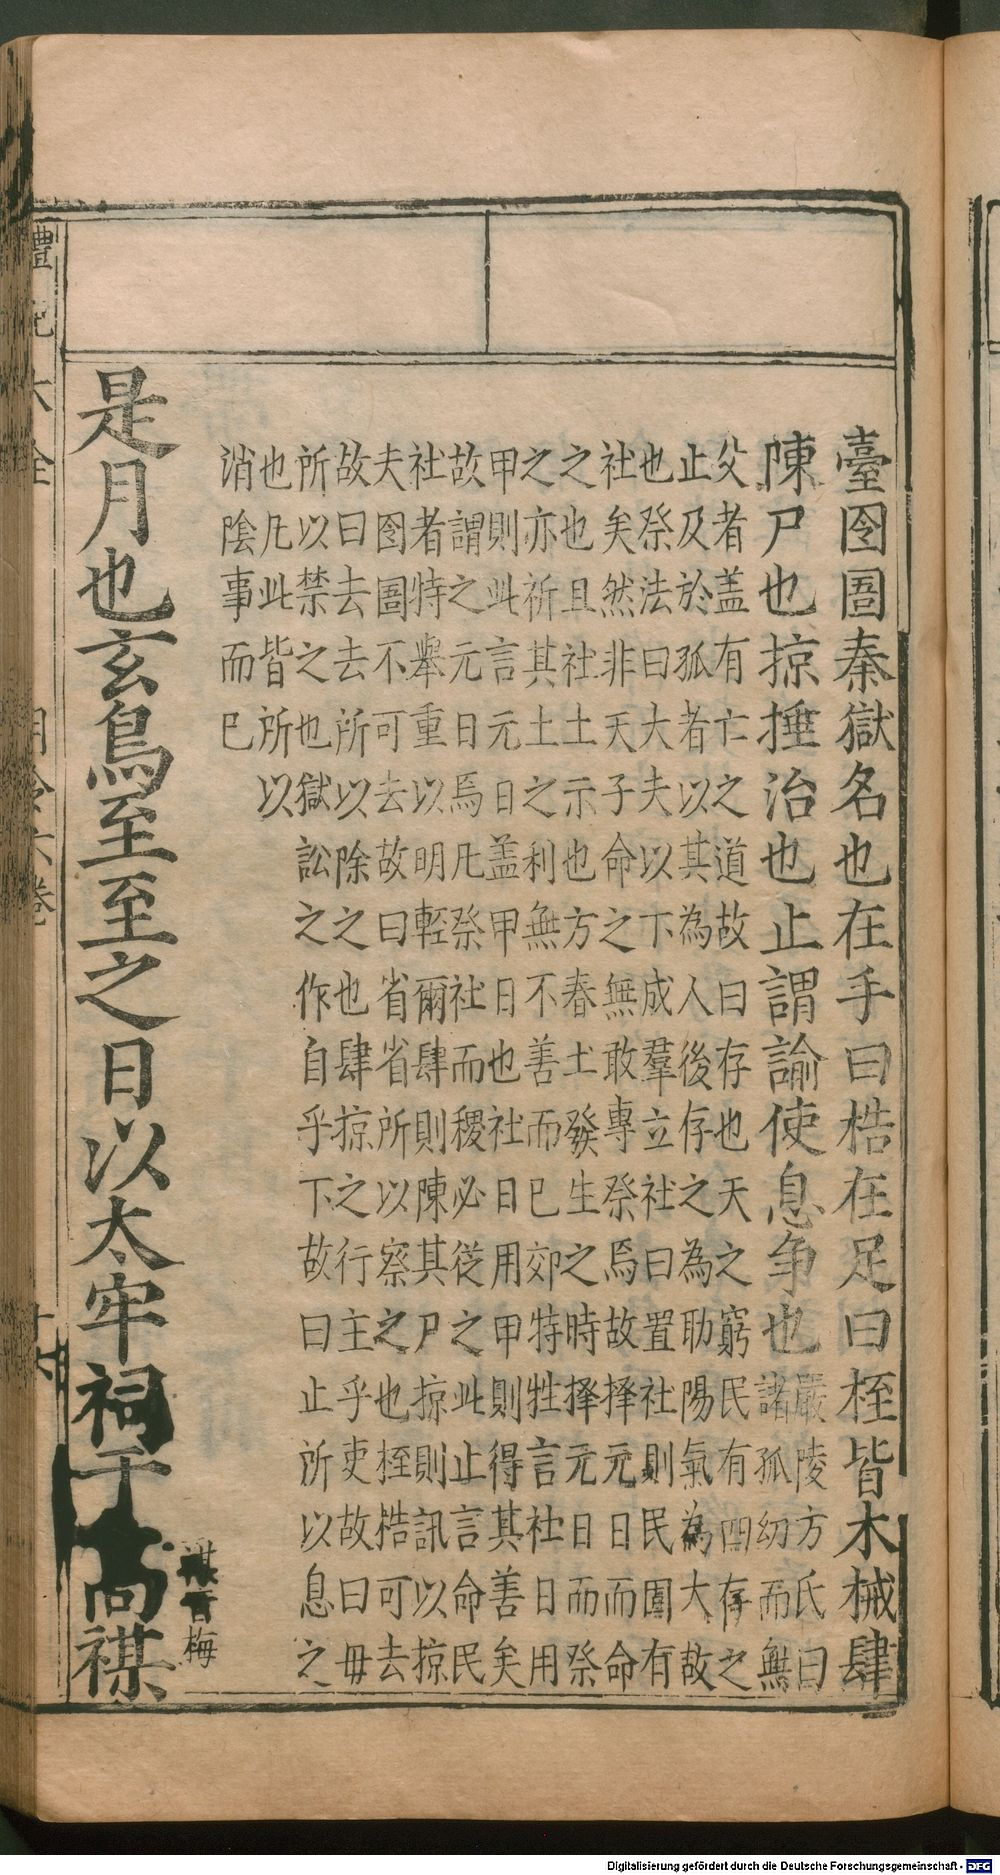 臺囹圄秦獄名也在手曰梏在足曰桎皆木械肆
陳尸也掠捶治也止謂諭使息争也嚴陵方氏曰諸孤幼而無
父者盖有亡之道故曰存也天之窮民有四存之
止及於孤者以其為人後存之為助陽氣為大故
也祭法曰大夫以下成羣立社曰置社則民圍有
社矣然非天子命之無敢專祭焉故擇元日而命
之也且社土示也方春土發生之時擇元日而祭
之亦祈其土之利無不善而已郊特牲言社日用
甲則此言元日盖甲日也社日用甲則得其善矣
故謂之元日焉凡祭社而稷必從之此止言命民
社者特舉重以明輕爾肆則陳其尸掠則訊以掠
夫囹圄不可去故曰省省所以察之也桎梏可去
故曰去去所以除之也肆掠之行主乎吏故曰毋
所以禁之也獄訟之作自乎下故曰止所以息之
也凡此皆所以
消陰事而已
是月也玄鳥至至之日以太牢祠于高禖禖音梅
禮記大全 月令六卷 十六
Digitalisierung gefördert durch die Deutsche Forschungsgemeinschaft - DFG